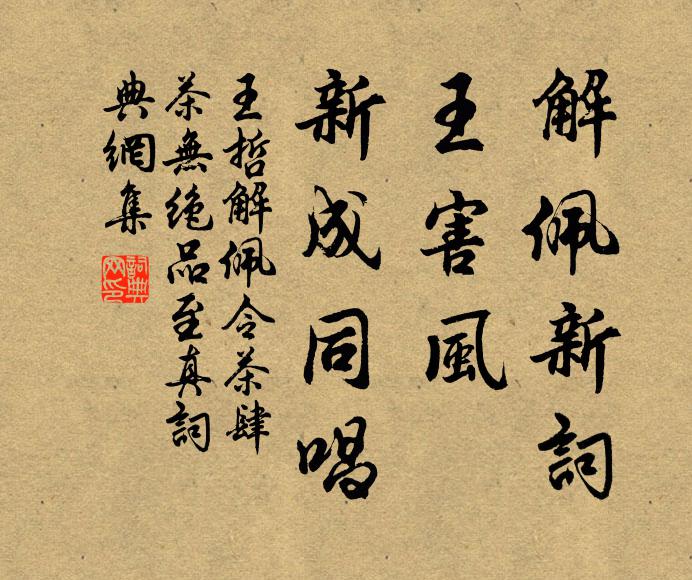 解佩新詞
王害風
新成同唱
王哲解佩令茶肆
茶無絶品至真詞
典網集
詞典
网印